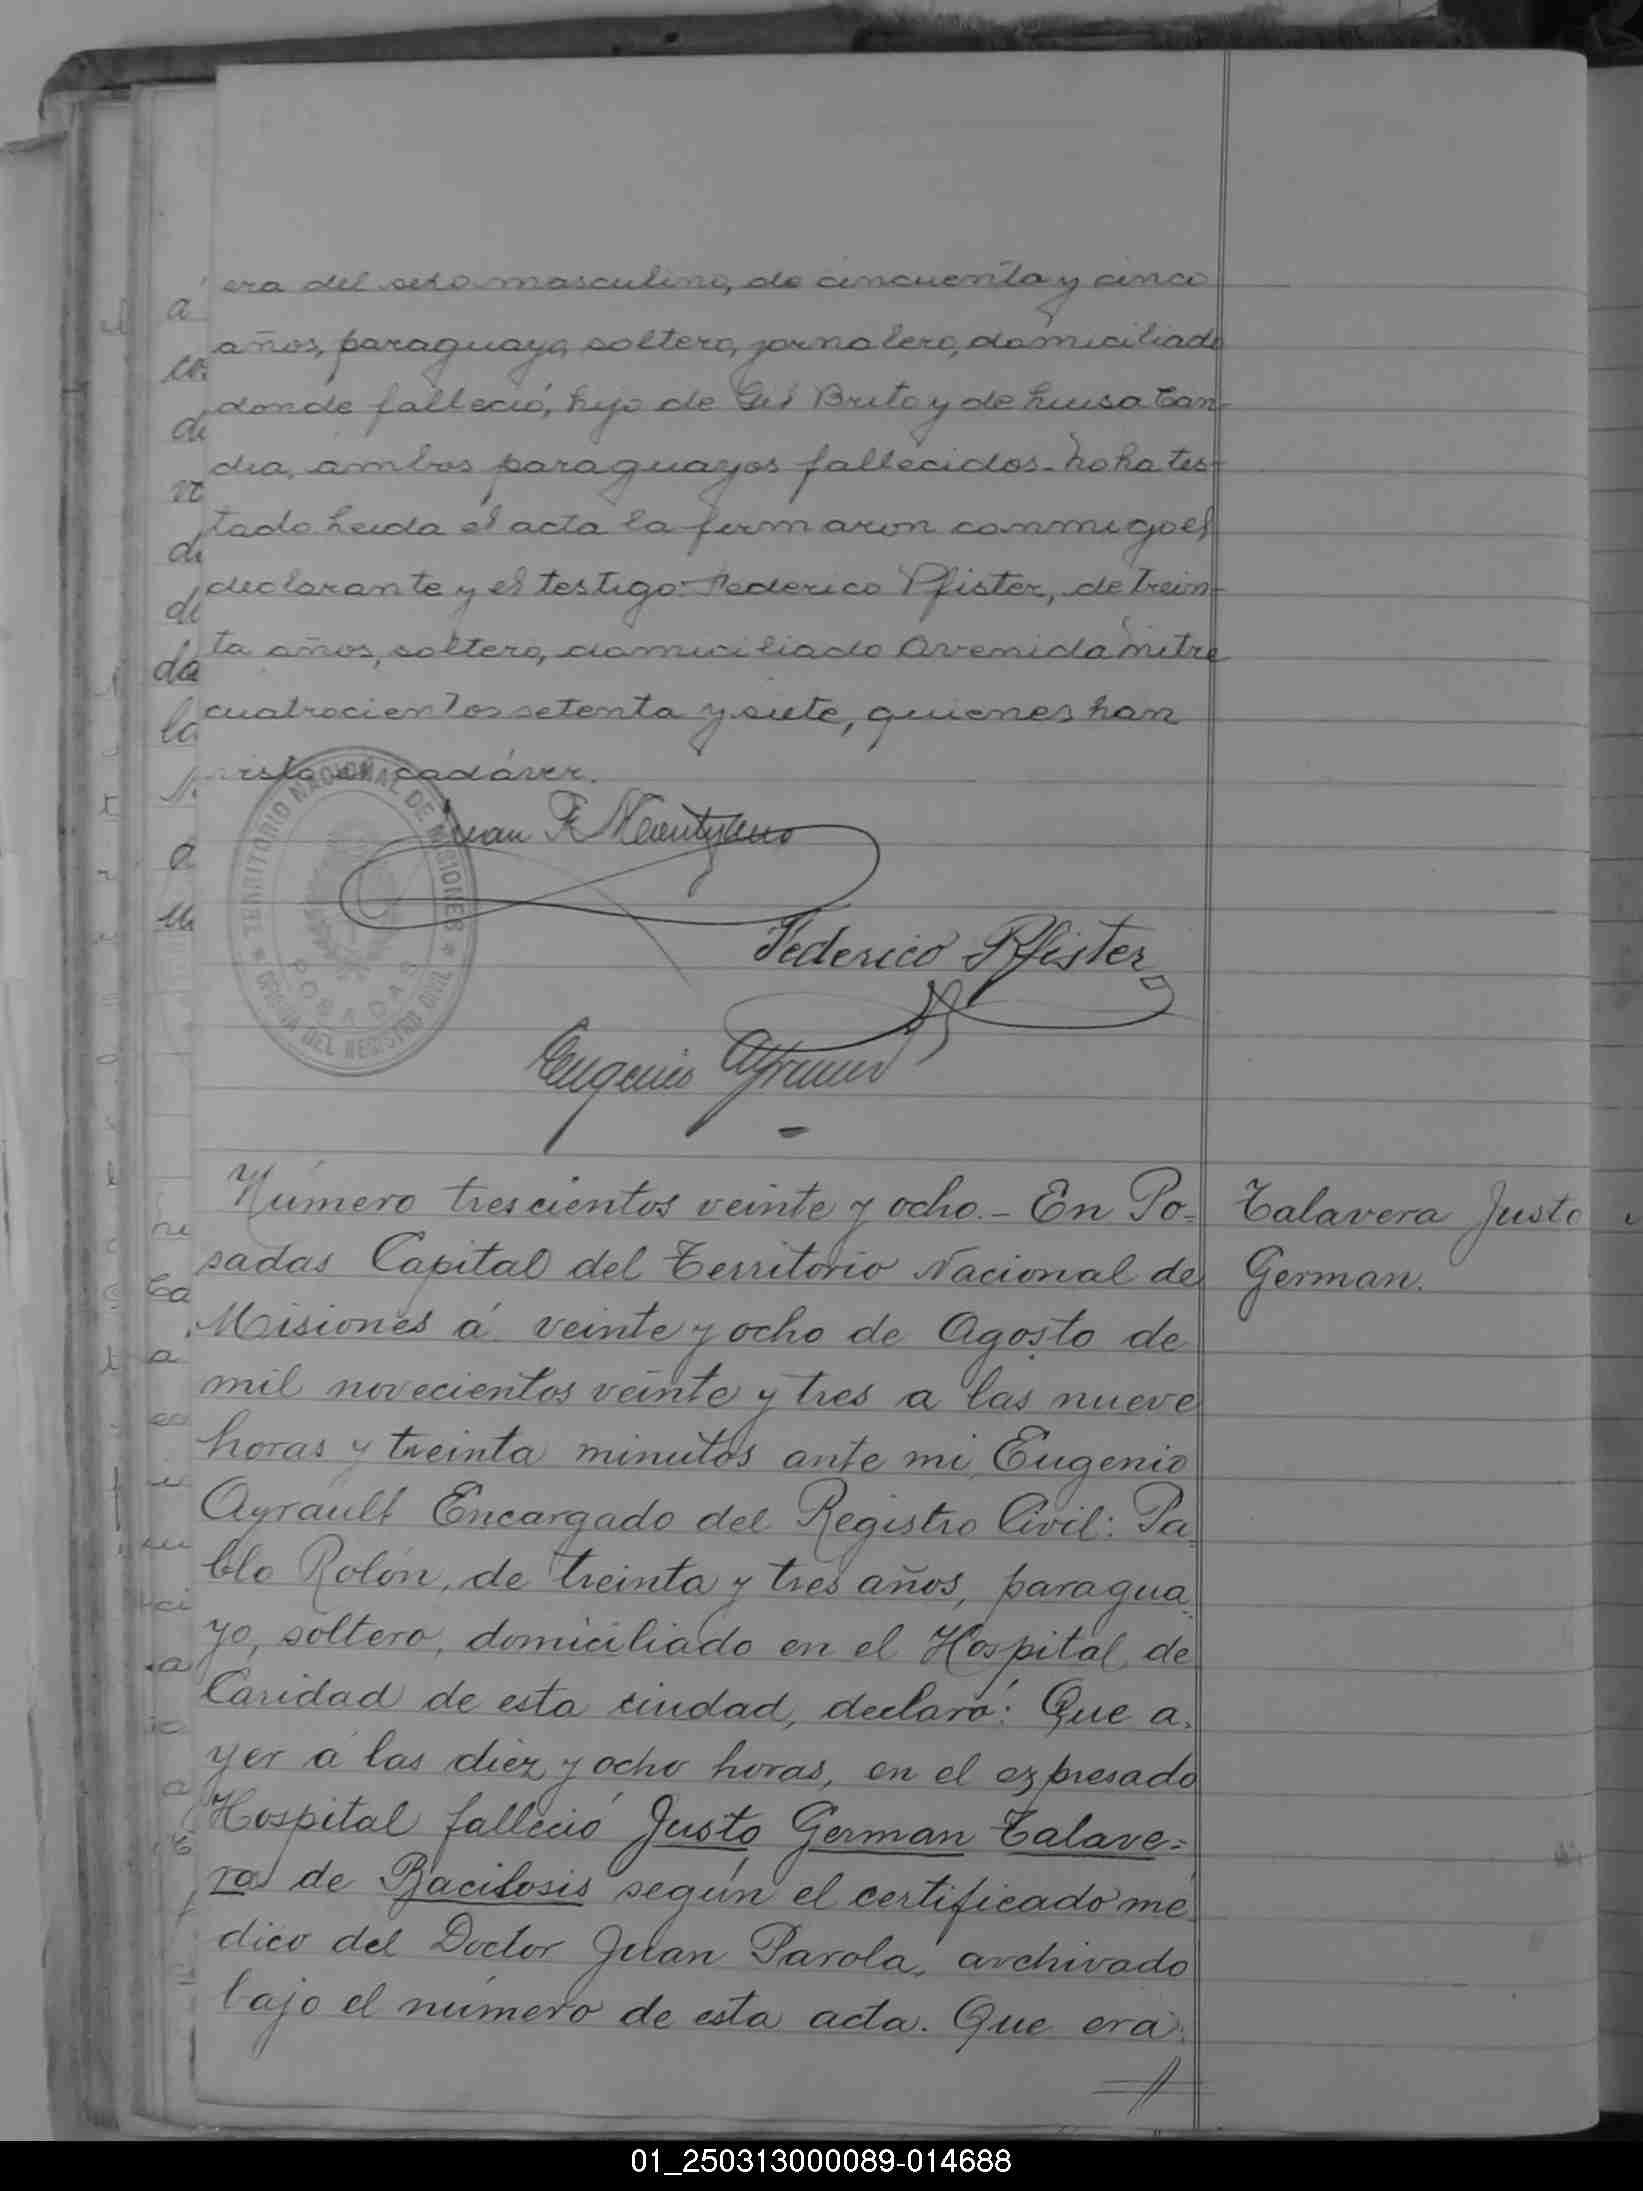 era del sexo masculino, de cincuenta y cinco
años, paraguayo, soltero, jornalero, domiciliado
donde falleció, hijo de Gil Brito y de Luisa Can-
dia, ambos paraguayos fallecidos. No ha tes-
tado. Leida el acta la firmaron conmigo el
declarante y el testigo Federico Pfister, de trein-
ta años, soltero, domiciliado Avenida Mitre
cuatrocientos setenta y siete, quienes han
visto el cadáver.
TERRITORIO NACIONAL DE MISIONES
OFICINA DEL REGISTRO CIVIL
POSADAS
Juan F.
Federico Pfister
Eugenio Ayrault
Número trescientos veinte y ocho.- En Po=
sadas Capital del Territorio Nacional de
Misiones á veinte y ocho de Agosto de
mil novecientos veinte y tres a las nueve
horas y treinta minutos ante mi, Eugenio
Ayrault Encargado del Registro Civil: Pa-
blo Rolón, de treinta y tres años, paragua-
yo, soltero, domiciliado en el Hospital de
Caridad de esta ciudad, declaró: Que a-
yer á las diez y ocho horas, en el expresado
Hospital falleció Justo German Talave=
ra de Bacilosis según el certificado mé-
dico del Doctor Juan Parola, archivado
bajo el número de esta acta. Que era
Talavera Justo
German.
01_250313000089-014688